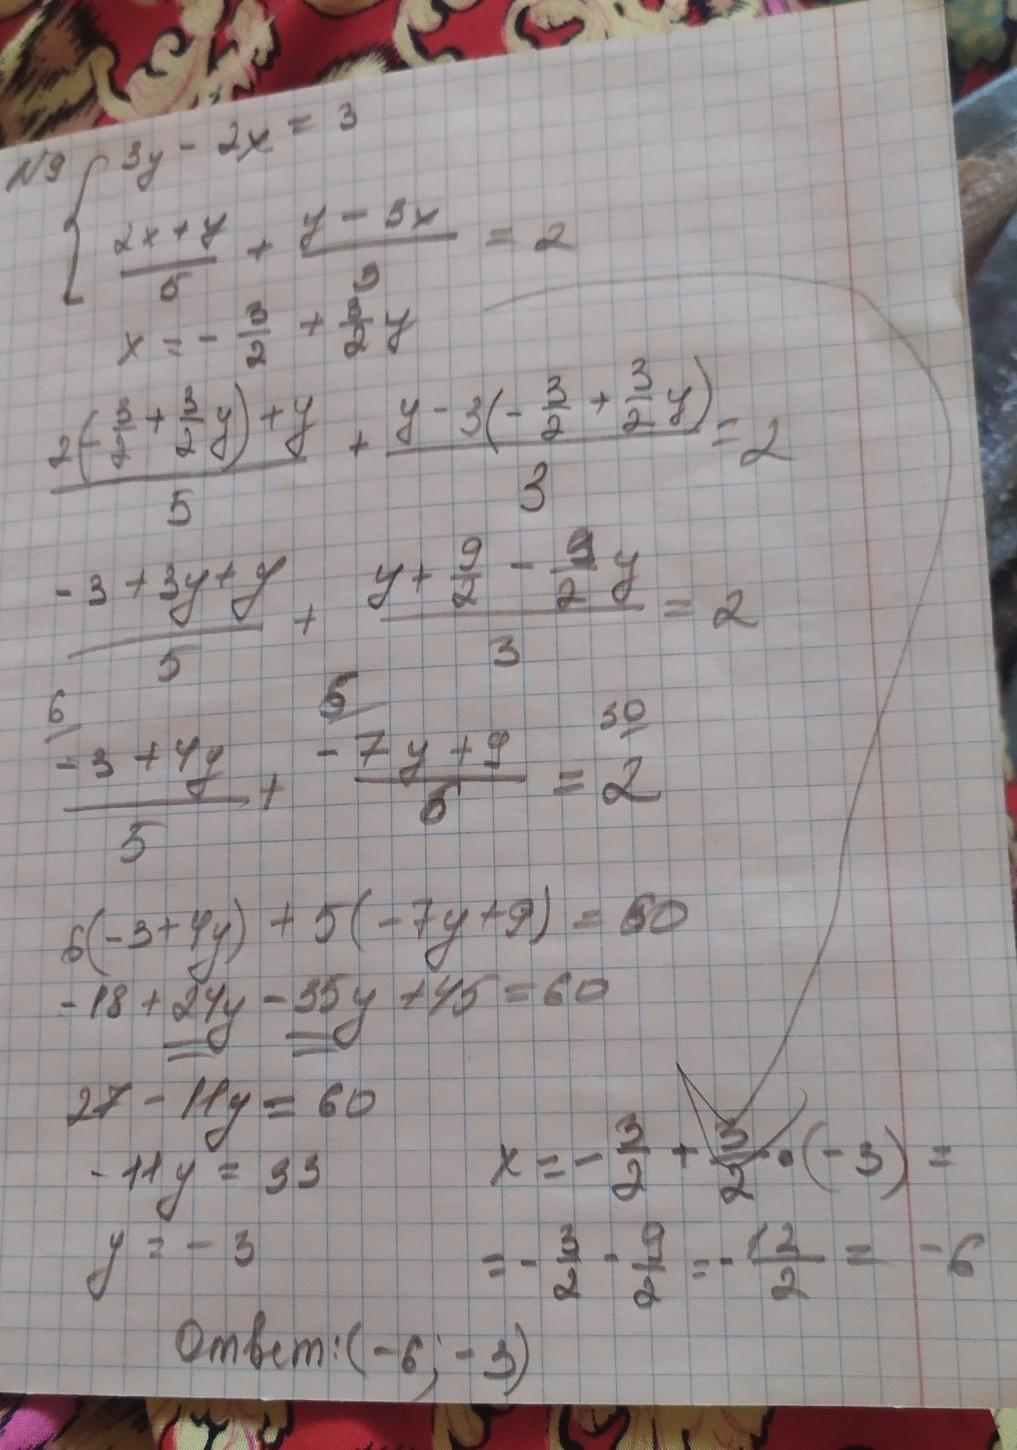 №9 { 3y - 2x = 3
(2x + y)/5 + (y - 3x)/3 = 2
x = - 3/2 + 3/2 y
(2(- 3/2 + 3/2 y) + y)/5 + (y - 3(- 3/2 + 3/2 y))/3 = 2
(-3 + 3y + y)/5 + (y + 9/2 - 9/2 y)/3 = 2
6 5 30
(-3 + 4y)/5 + (-7y + 9)/6 = 2
6(-3+4y) + 5(-7y+9) = 60
-18 + 24y - 35y + 45 = 60
27 - 11y = 60
-11y = 33
y = - 3
x = - 3/2 + 3/2 · (-3) =
= - 3/2 - 9/2 = - 12/2 = -6
Ответ: (-6; -3)